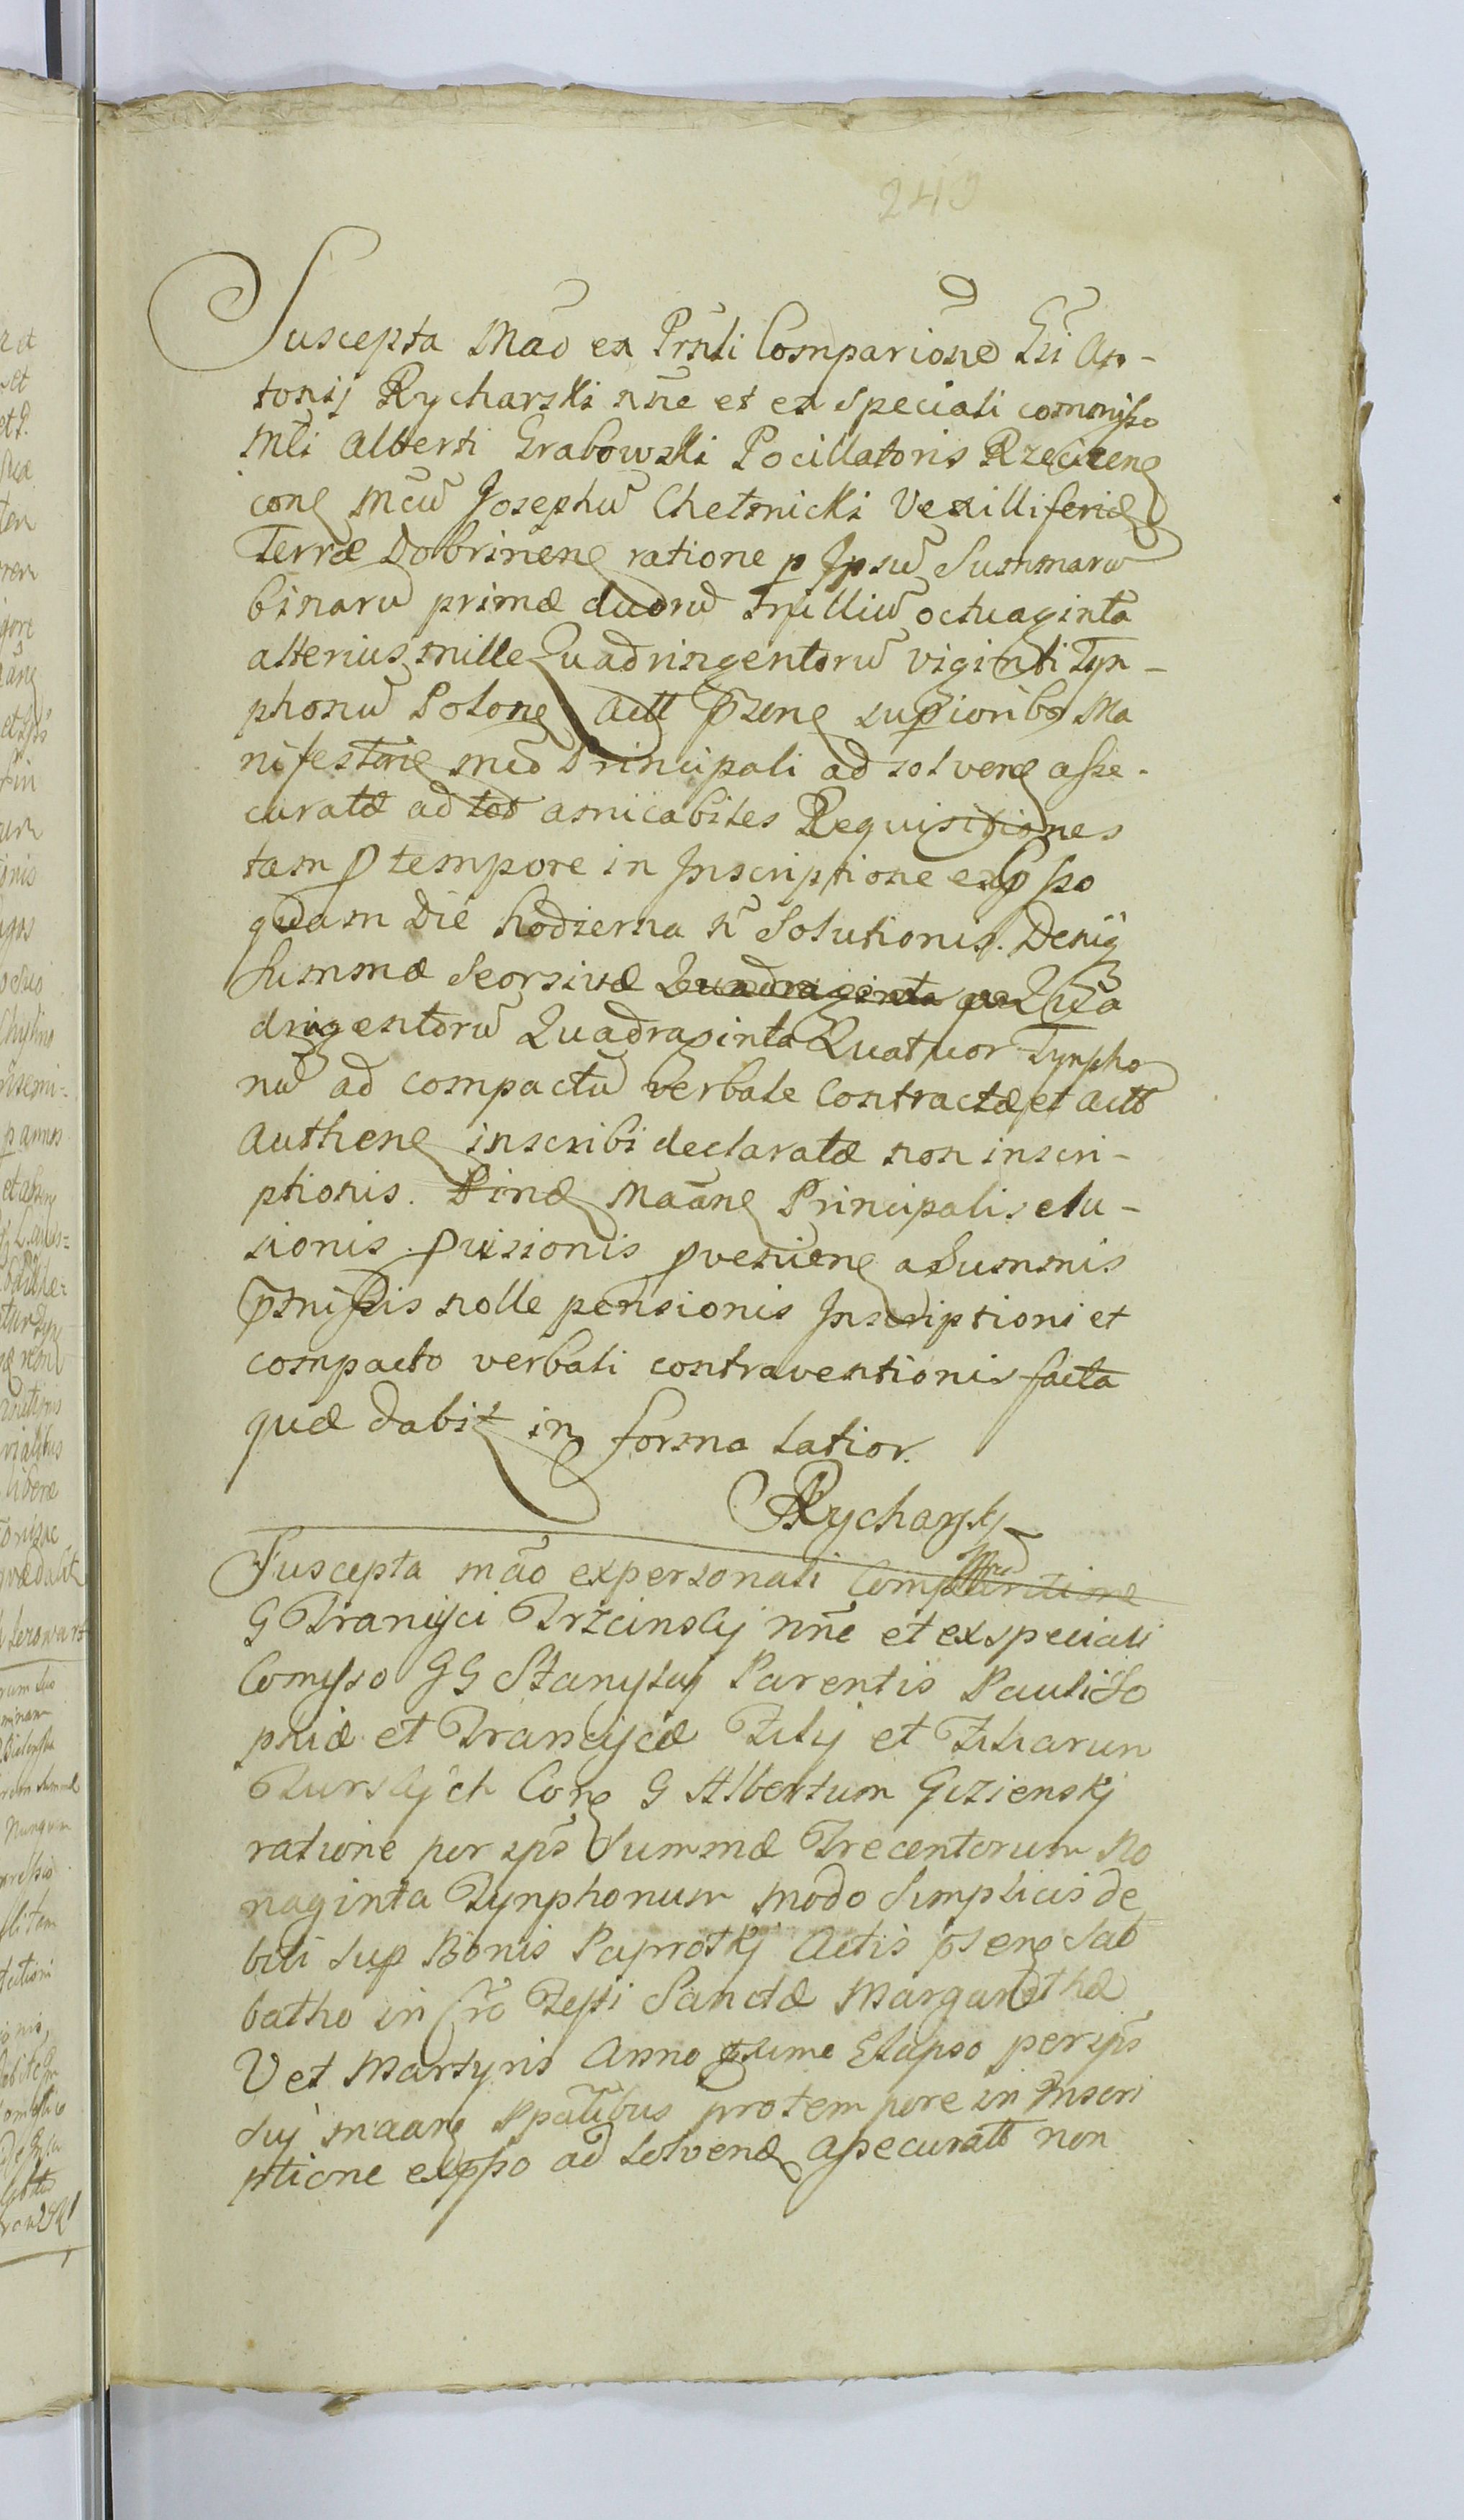 249
Suscepta Mão ex Prsnli Comparione Gsi An-
tonij Rycharski nñe et ex speciali commisso
Mfci Alberti Grabowski Pocillatoris Rzeciceñ
coñ Mcum Josephum Chetmicki Vexilliferum
Terræ Dobrineñ ratione p Ipsum Summarum
binarum primæ duorum milliũ octuaginta
alterius mille Quadringentorũ viginti Tyn-
phonũ Poloñ Actt p̃señ superioribo Ma
nifestañ meo Principali ad solvenđ asse-
curatæ ad tot amicabiles Requisitiones
tam p tempore in Inscriptione exp̃sso
quam Die hodierna ñ Solutionis. Deniq
Summæ Seorsivæ Qua
dringentorũ Quadraginta Quatuor Tynpho
nũ ad compactũ verbale contractæ et Actt
Autheñ inscribi declaratæ non inscri-
ptionis. Binæ Maañ Principalis elu-
sionis provisionis proveñieñ a Summis
p̃missis nolle pensionis Inscriptioni et
compacto verbali contraventionis facta
quæ dabit in forma latior.
Rycharsky
Suscepta mão ex personali Comparitione
G Francisci Trzcinsky nñe et ex speciali
Comisso GG Stanislaj Parentis Pauli So
phiæ et Franciscæ Filij et Filiarum
Turskych Coñ G Albertum Gizienskj
ratione per ips̃ Summæ Trecentorum No
naginta Tynphonum modo Simplicis de
biti sup Bonis Paprotkj Actis p̃señ Sab
batho in Cr̃o Festi Sanctæ Margarethæ
V et Martyris Anno p̃xime Elapso per ips̃
suj maañ Ppalibus pro tempore in Inscri
ptione exp̃sso ad solvenđ assecuratt non